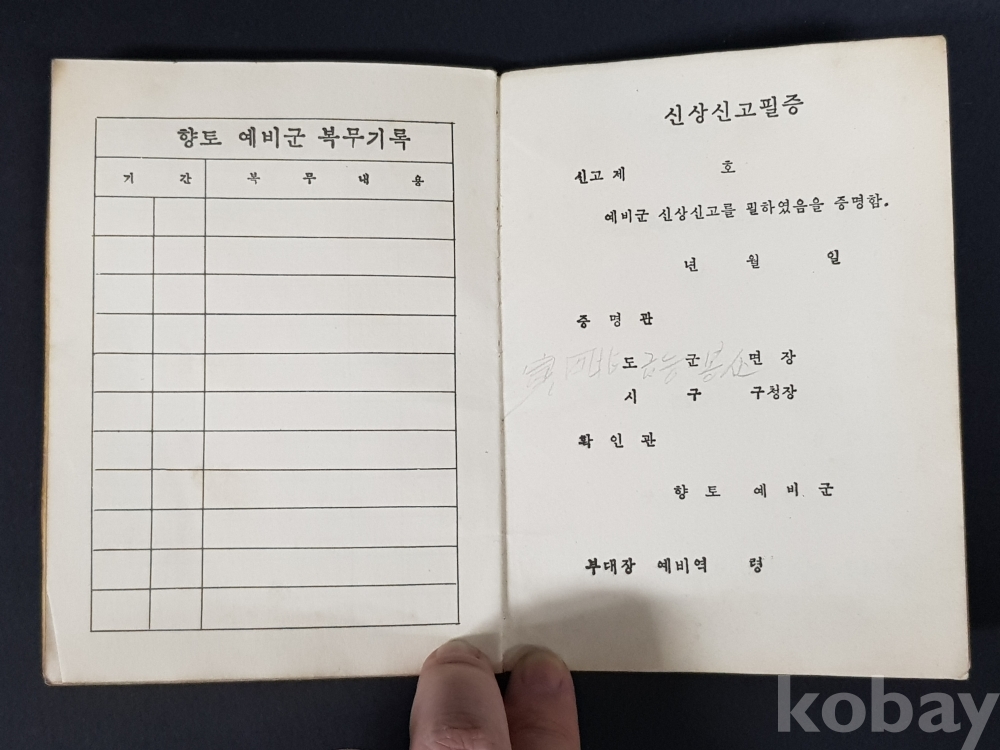 향토 예비군 복무기록
기 간 복 무 내 용
신상신고필증
신고 제 호
예비군 신상신고를 필하였음을 증명함.
년 월 일
증 명 관
도 군 면 장
시 구 구청장
확 인 관
향 토 예 비 군
부대장 예비역 령
kobay